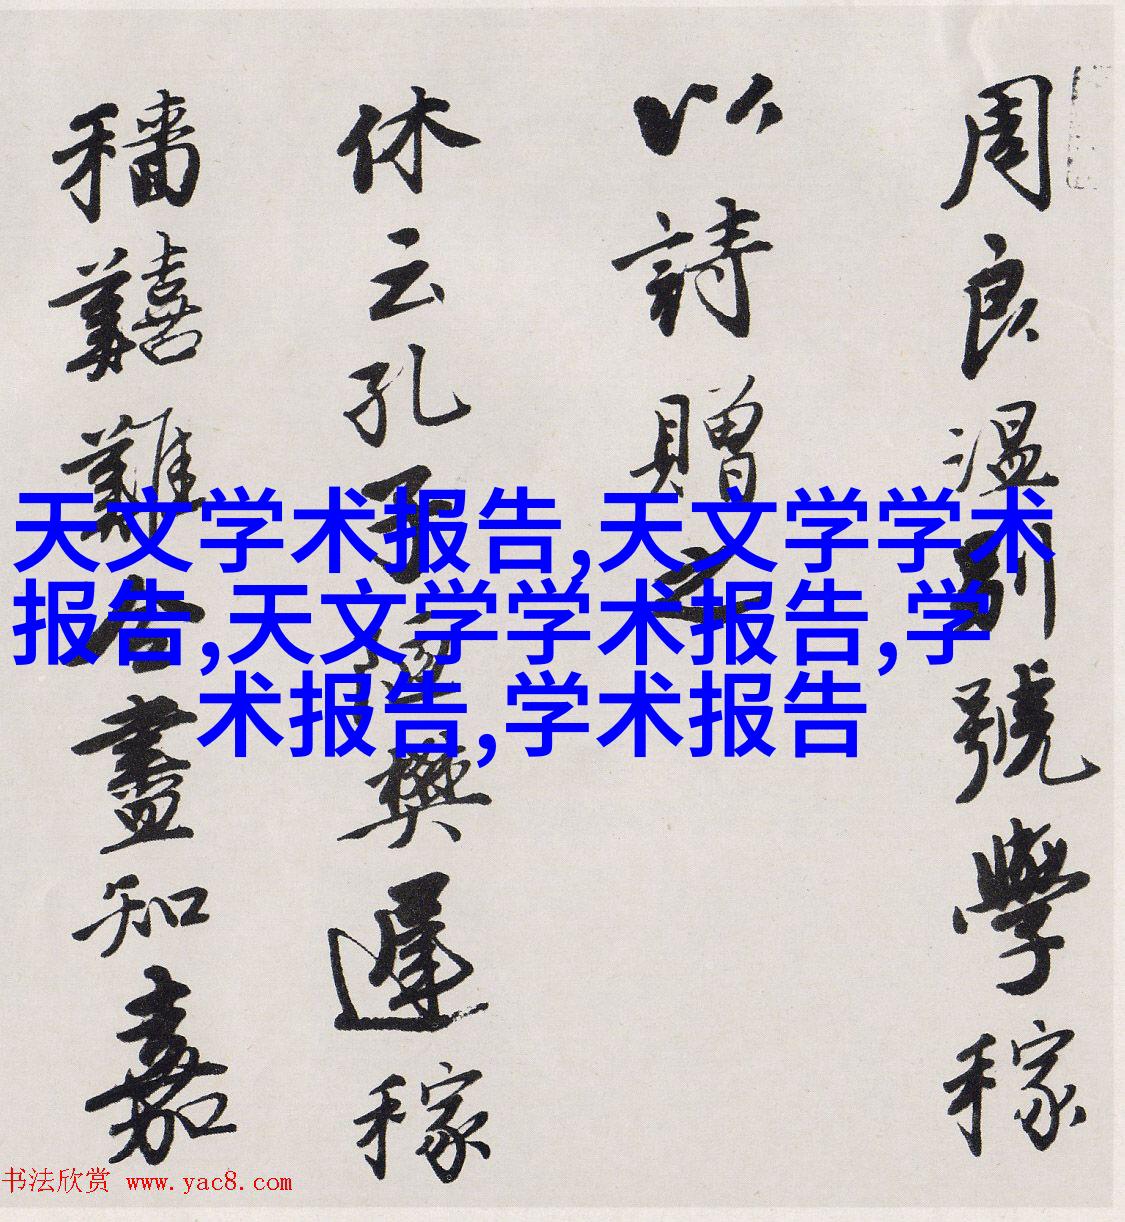 周良温別號學稼
以詩贈之
休云孔子樊遲稼
穡囏難盡知嘉
天文学术报告,天文学学术
报告,天文学学术报告,学
术报告,学术报告
书法欣赏 www.yac8.com